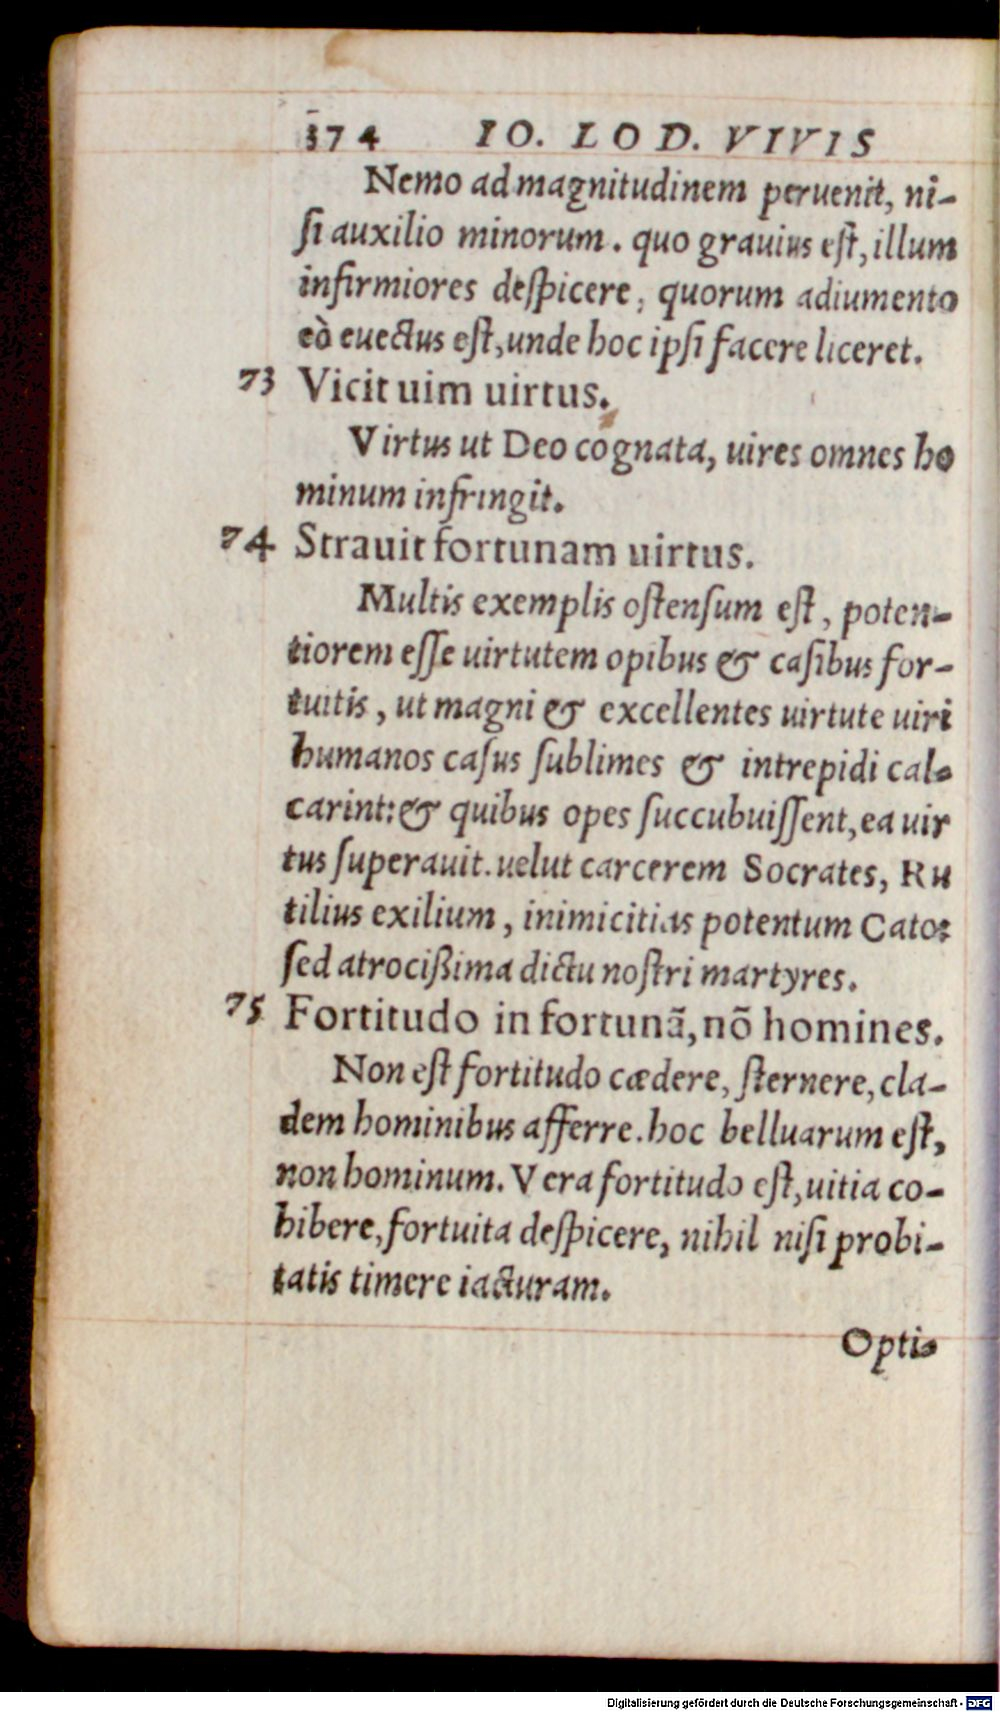 374 IO. LOD. VIVIS
Nemo ad magnitudinem peruenit, ni-
ſi auxilio minorum. quo grauius eſt, illum
infirmiores deſpicere, quorum adiumento
eò euectus eſt, unde hoc ipſi facere liceret.
73 Vicit uim uirtus.
Virtus ut Deo cognata, uires omnes ho
minum infringit.
74 Strauit fortunam uirtus.
Multis exemplis oſtenſum eſt, poten-
tiorem eſſe uirtutem opibus & caſibus for-
tuitis, ut magni & excellentes uirtute uiri
humanos caſus ſublimes & intrepidi cal-
carint: & quibus opes ſuccubuiſſent, ea uir
tus ſuperauit. uelut carcerem Socrates, Ru
tilius exilium, inimicitias potentum Cato:
ſed atrocißima dictu noſtri martyres.
75 Fortitudo in fortunã, nõ homines.
Non eſt fortitudo cædere, ſternere, cla-
dem hominibus afferre. hoc belluarum eſt,
non hominum. Vera fortitudo eſt, uitia co-
hibere, fortuita deſpicere, nihil niſi probi-
tatis timere iacturam.
Opti-
Digitalisierung gefördert durch die Deutsche Forschungsgemeinschaft - DFG